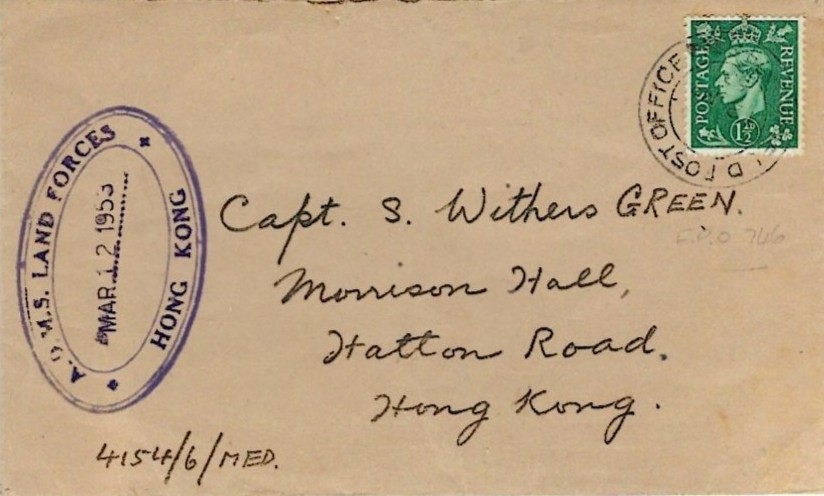 POSTAGE REVENUE
1½D
FIELD POST OFFICE
A.D.M.S. LAND FORCES
MAR 12 1953
HONG KONG
Capt. S. Withers GREEN.
F.P.O 746
Morrison Hall,
Hatton Road.
Hong Kong.
4154/6/MED.